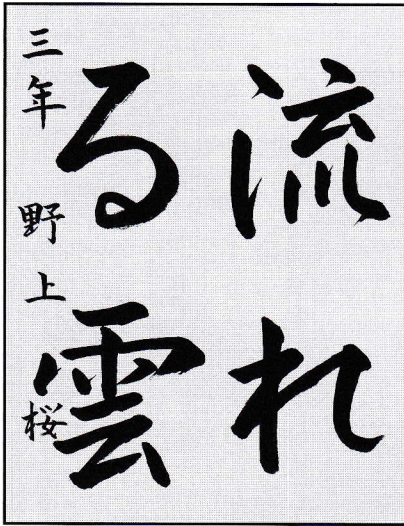 流れ
る雲
三年 野上 桜